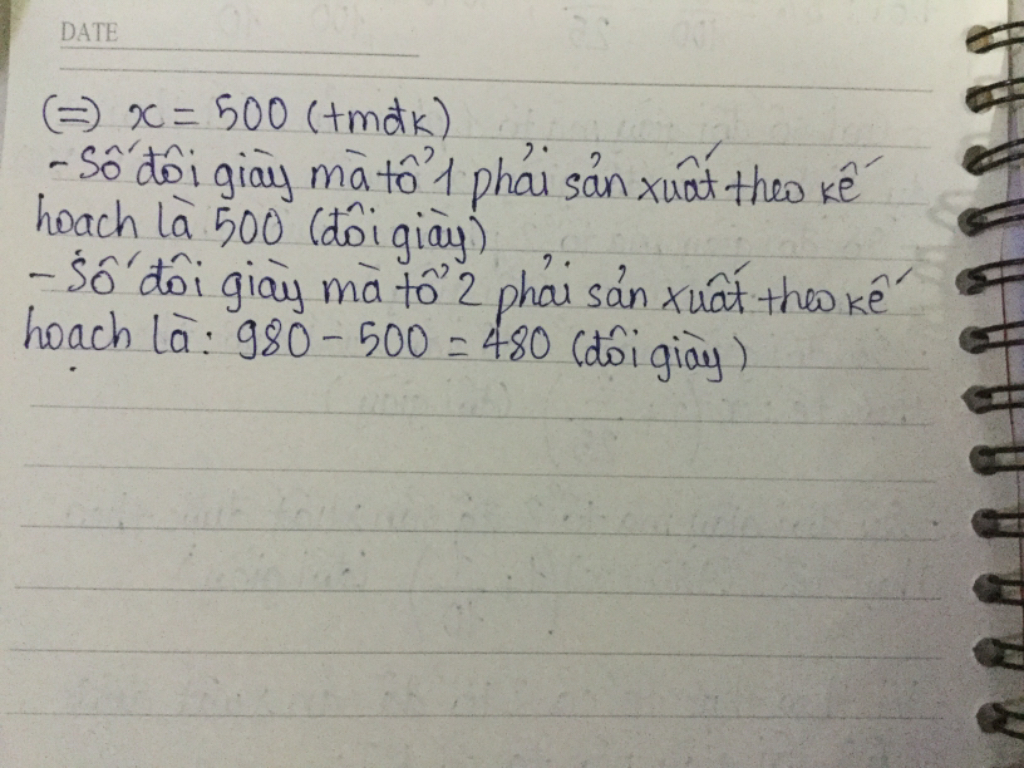 DATE
(=) x = 500 (+mđk)
- Số đôi giày mà tổ 1 phải sản xuất theo kế
hoach là 500 (đôi giày)
- Số đôi giày mà tổ 2 phải sản xuất theo kế
hoach là: 980 - 500 = 480 (đôi giày)